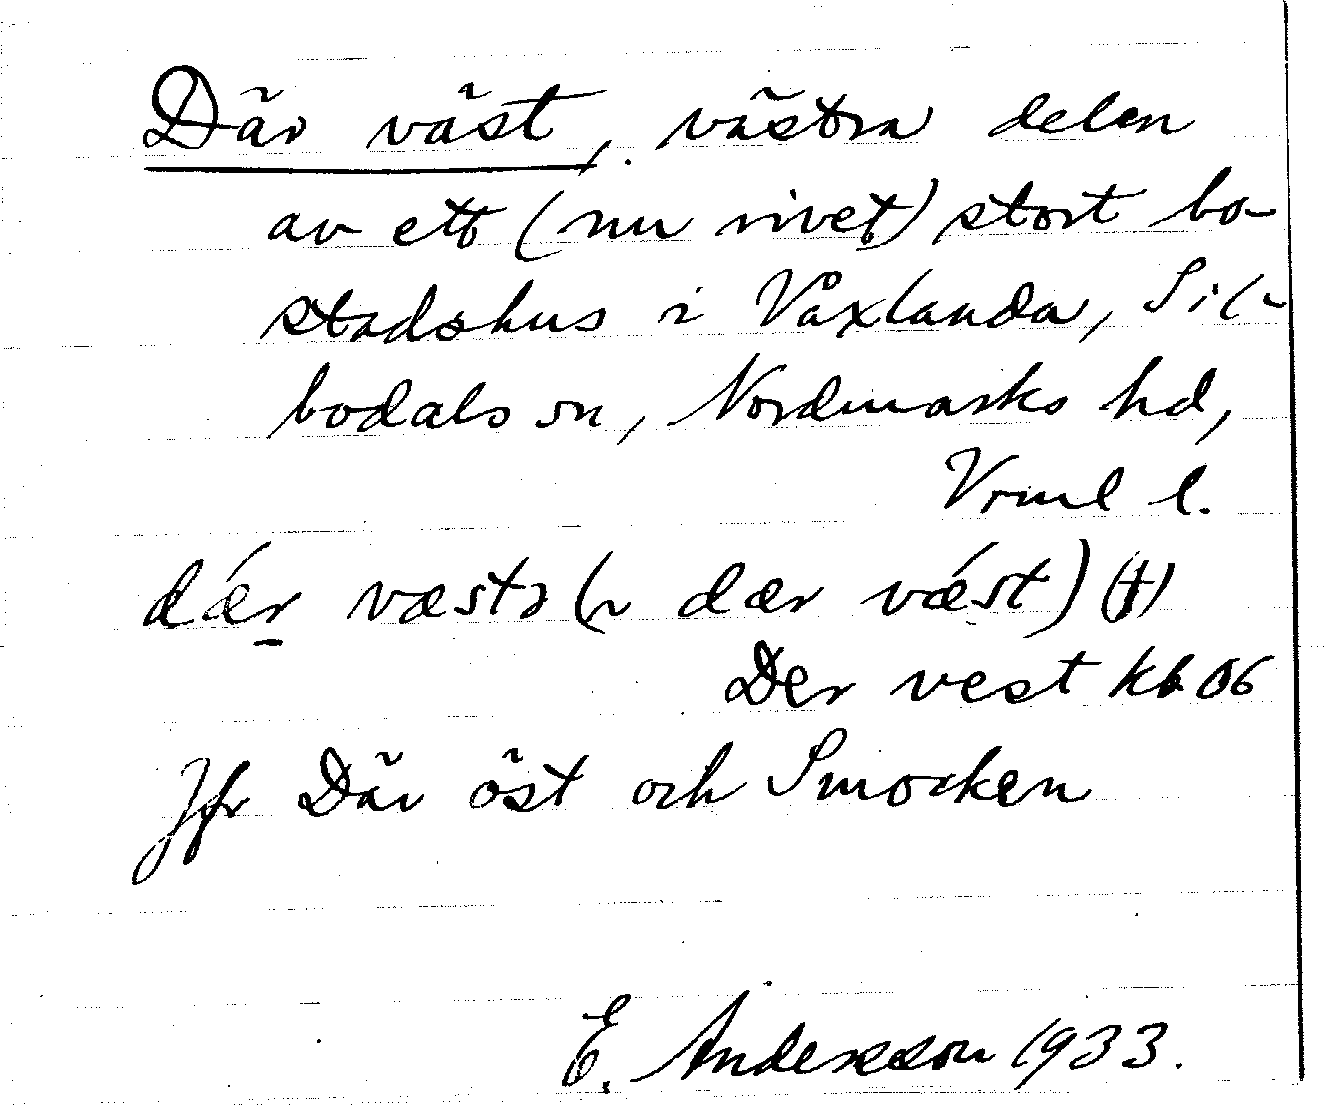 Där väst, västra delen
av ett (nu rivet) stort bo-
stadshus i Våxlanda, Sil-
bodals sn, Nordmarks hd,
Vrml l.
dǽr væstə (~ dær vǽst) (†)
Der vest kb 06
Jfr Där öst och Smocken
E. Andersson 1933.